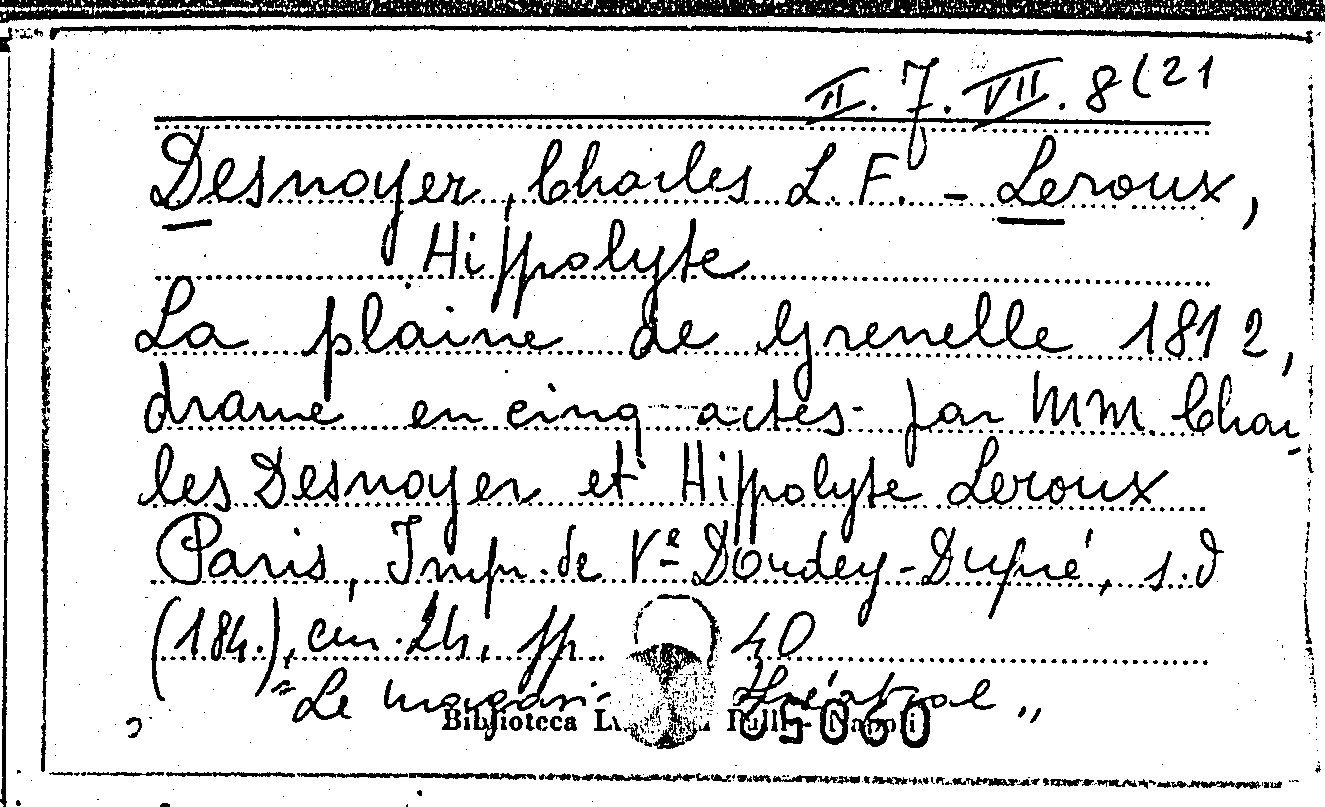 II. 7. VII. 8(21
Desnoyer, Charles L. F. - Leroux,
Hippolyte
La plaine de Grenelle 1812,
drame en cinq actes par MM Char-
les Desnoyer et Hippolyte Leroux
Paris, Imp. de Ve Doudey-Dupré, s.d
(184.), cm. 24, pp. 40
"Le magasin théatral"
Biblioteca Napoli
05060